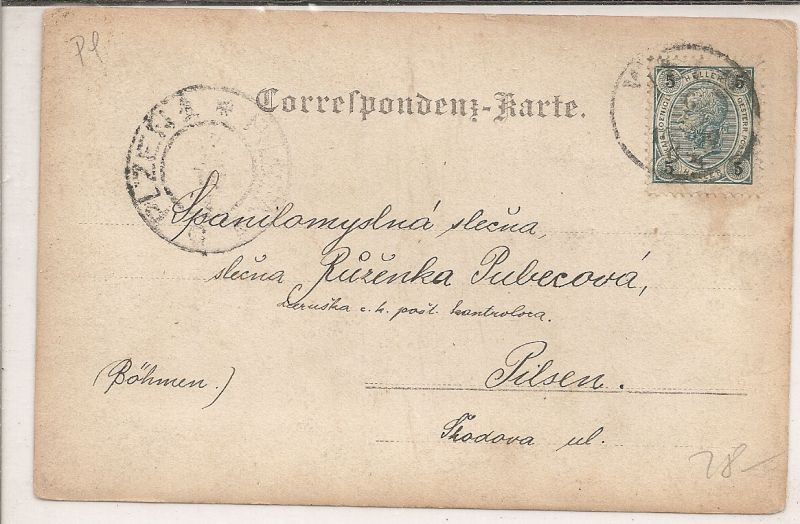 Pl
Correspondenz-Karte.
PLZEŇ 1 *
5 HELLER 5
5 5
Spanilomyslná slečna,
slečna Růženka Pubecová,
c. k. pošt. kontrolora.
(Böhmen.)
Pilsen.
Škodova ul.
28-